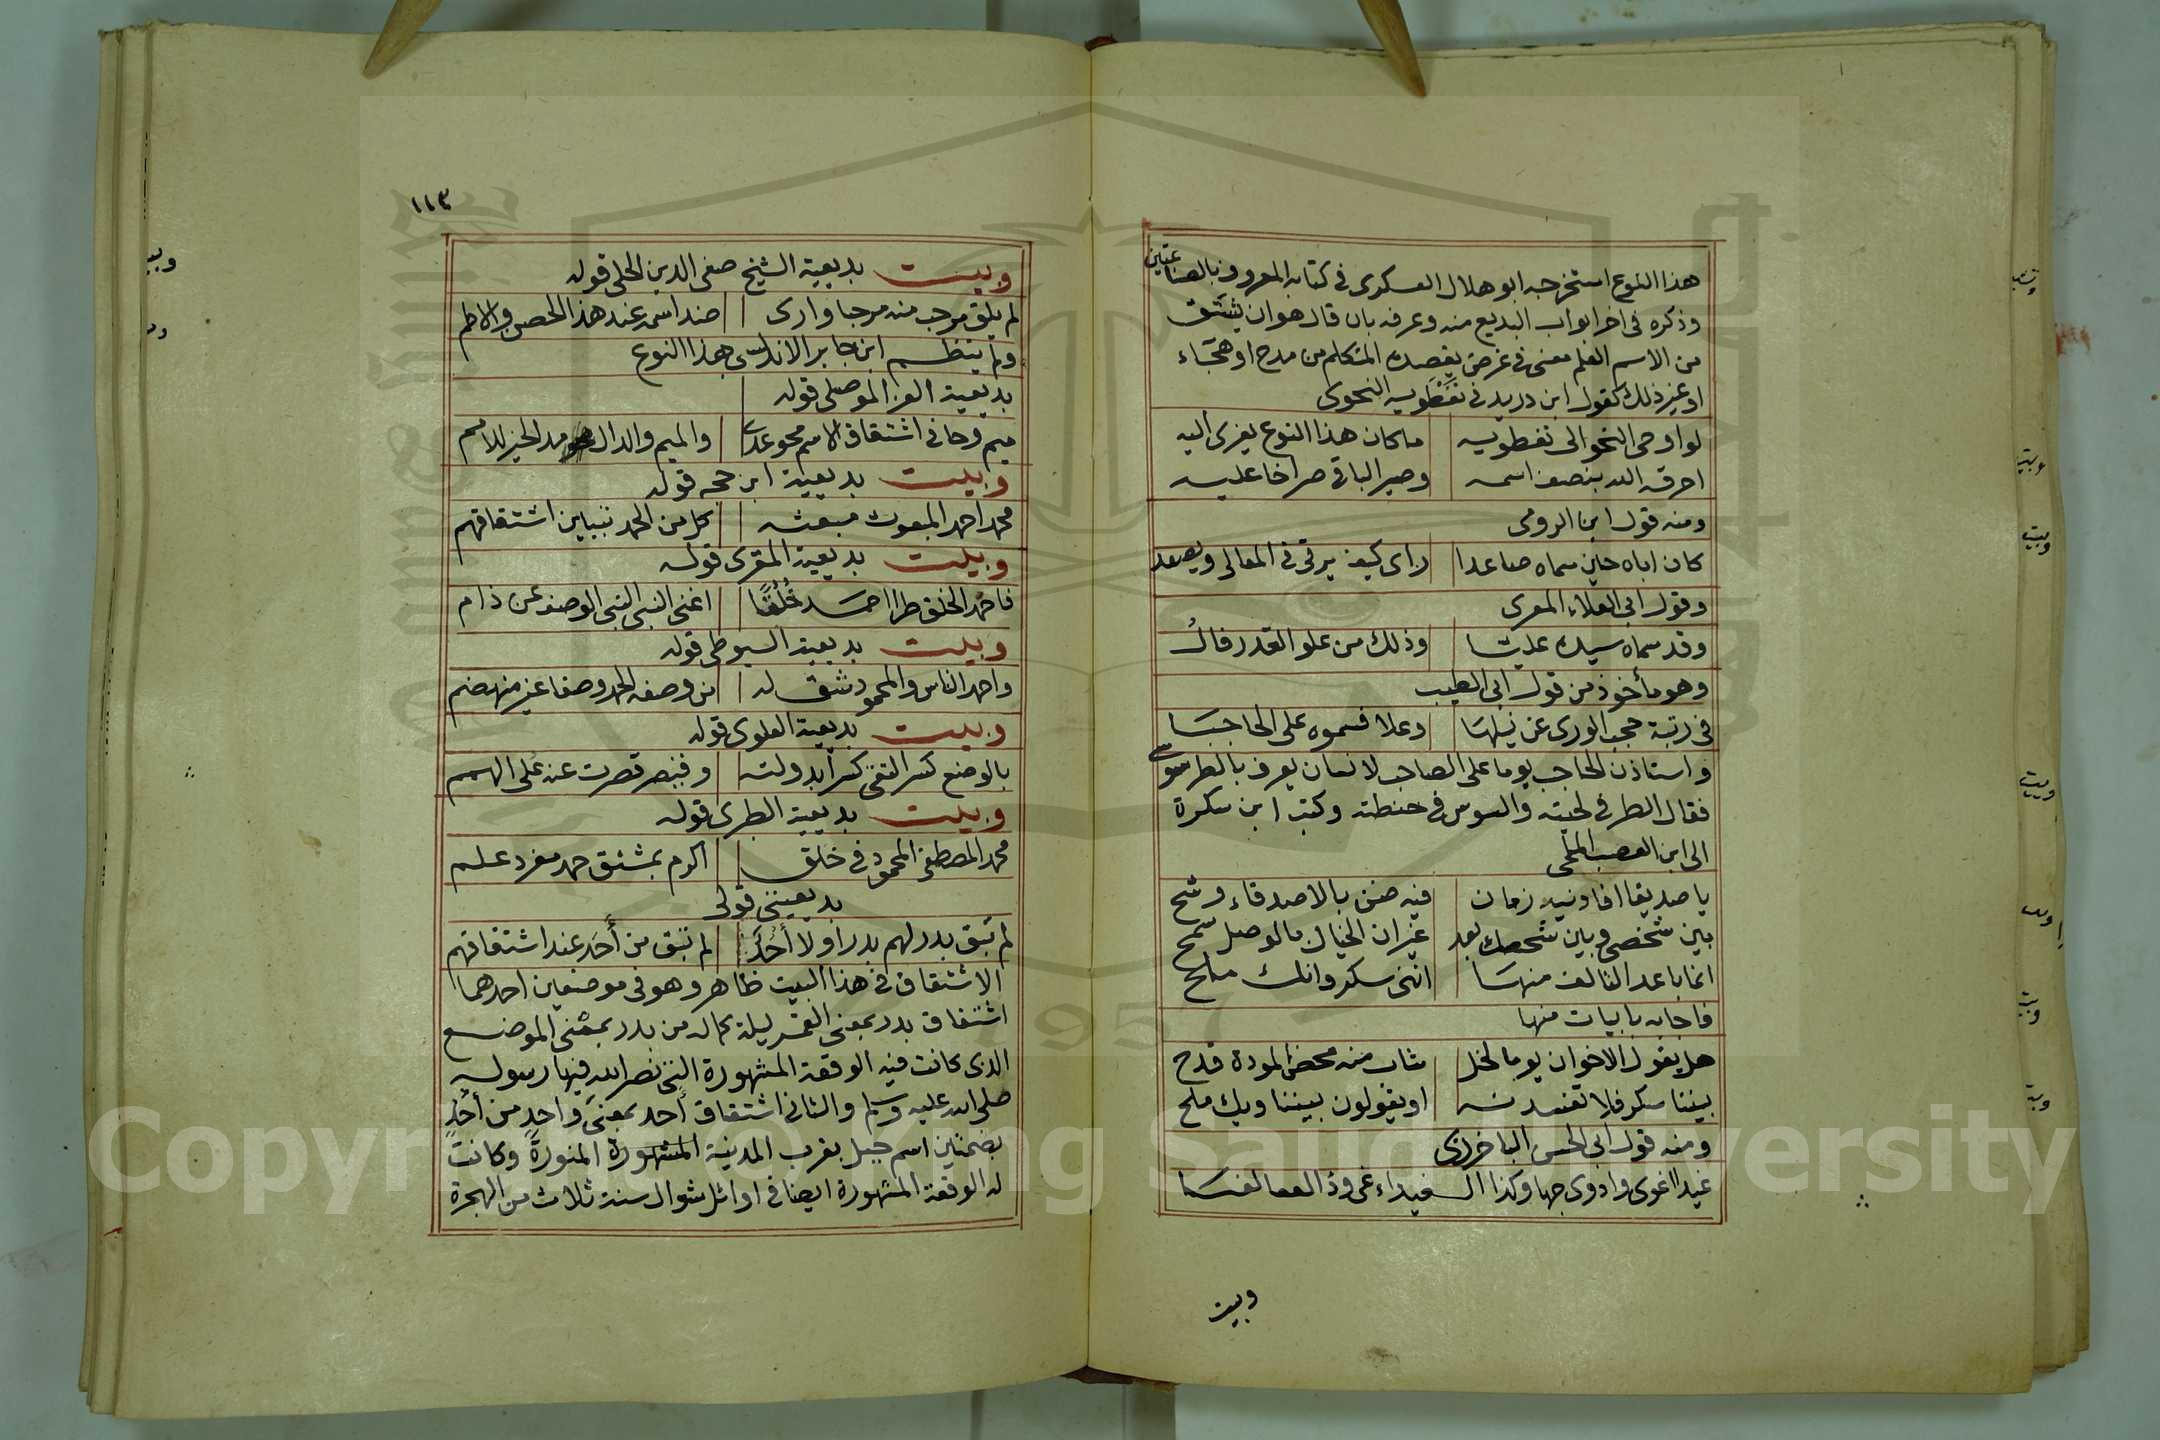 هذا النوع استخرجه ابو هلال العسكرى فى كتابه المعروف بالصناعتين
وذكره فى اخر ابواب البديع منه وعرفه بان قال هو ان يشتق
من الاسم العلم معنى فى غرض يقصده المتكلم من مدح او هجاء
او غير ذلك كقول ابن دريد فى نفطويه النحوى
لو اوحى النحو الى نفطويه ما كان هذا النوع يغرى اليه
احرقه الله بنصف اسمه وصير الباقى صراخا عليه
ومنه قول ابن الرومى
كان اباه حين سماه صاعدا راى كيف يرقى فى المعالى ويصعد
وقول ابى العلاء المعرى
وقد سماه سيده عليا وذلك من علو القدر فال
وهو مأخوذ من قول ابى الطيب
فى رتبة حجب الورى عن نيلها وعلا فسموه على الحاجبا
واستاذن الحاجب يوما على الصاحب لانسان يعرف بالطرسوسى
فقال الطر فى لحيته والسوس فى حنطته وكتب ابن سكرة
الى ابن العصب الملحى
يا صديقا افادنيه زمان فيه ضن بالاصدقاء وشح
بين شخصى وبين شخصك بعد غير ان الخيال بالوصل سمح
انما باعد التالف منا اننى سكر وانك ملح
فاجابه بابيات منها
هل يقول الاخوان يوما لخل شاب منه محض المودة قدح
بيننا سكر فلا تفسدنه او يقولون بيننا ويك ملح
ومنه قول ابى الحسن الباخرزى
وبيت
١١٣
وبيت بديعية الشيخ صفى الدين الحلى قوله
لم يلق مرحب منه مرحبا وراى ضد اسمه عند هذا الحصن والاطم
ولم ينتظم ابن جابر الاندلسى هذا النوع
بديعية العز الموصلى قوله
ميم وحا فى اشتقاق الاسم محو عدى والميم والدال مد الخير للامم
وبيت بديعية ابن حجه قوله
محمد احمد المبعوث مبعثه كل من الحمد تبيين اشتقاقهم
وبيت بديعية المقرى قوله
فاحمد الخلق طرا احمد خُلُقًا اغنى النبى النبى الوصف عن ذام
وبيت بديعية السيوطى قوله
واحمد الناس والمحمود شق له من وصفه الحمد وصفا غير منهضم
وبيت بديعية العلوى قوله
بالوضع كسر التقى كسرا بدولته وقيصر قصرت عنه على الهمم
وبيت بديعية الطبرى قوله
محمد المصطفى المحمود فى خلق اكرم بمشتق حمد مفرد علم
بديعيتى قولى
لم تبق بدر لهم بدرا ولا أُحُد لم تبق من أَحَد عند اشتقاقهم
الاشتقاق فى هذا البيت ظاهر وهو فى موضعين احدهما
اشتقاق بدر بمعنى القمر ليلة كماله من بدر بمعنى الموضع
الذى كانت فيه الوقعة المشهورة التى نصر الله فيها رسوله
صلى الله عليه وسلم والثانى اشتقاق أَحد بمعنى واحد من أُحُد
بضمتين اسم جبل بقرب المدينة المشهورة المنورة وكانت
له الوقعة المشهورة ايضا فى اوائل شوال سنة ثلاث من الهجرة
Copyright © King Saud University
1957